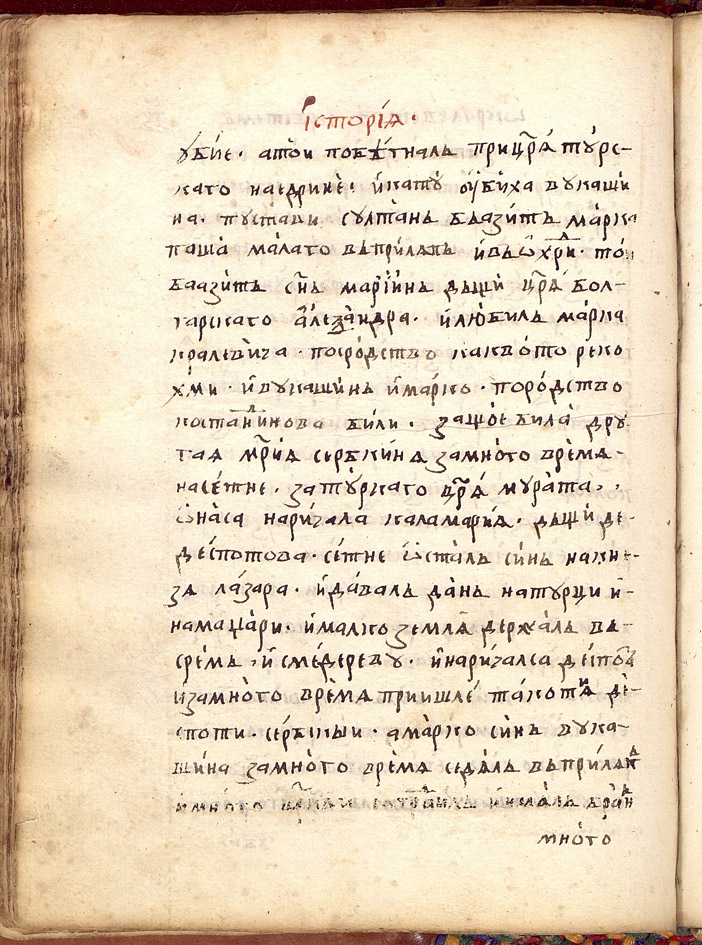 їсторїѧ ·
ꙋбїе · атои побѣгналь прицр҃ѧ тꙋрс-
каго наедрине · икатꙋ ꙋбиха вꙋкаши
на · пꙋстави сꙋлтань баазить марка
паша малаго вьприлѧпь ивьѡхри · то
баазить сн҃ь маріинь дьщи цр҃ѧ бол-
гарскаго алеѯандра · илюбиль марка
кралевича · посродство каквото реко
хми · ивꙋкашинь имарко · породство
костанинова били · защое била дрꙋ
гаѧ мр҃иѧ сербкинѧ замного времѧ-
насетне · затꙋркаго цр҃ѧ мꙋрата ·
ѡнаса наричала каламариѧ · дьщи де-
деспотова · сетне ѡсталь синь накне-
зѧ лазара · идаваль дань натꙋрци и-
намаџари · ималко землѧ держаль вь-
сремь · исмедеревꙋ · инаричалса деспоть
изамного времѧ приишле такогиѧ де-
споти · сербкыи · амарко синь вꙋка-
шина замного времѧ седѧль вьприлѧпь
имного ималь
много